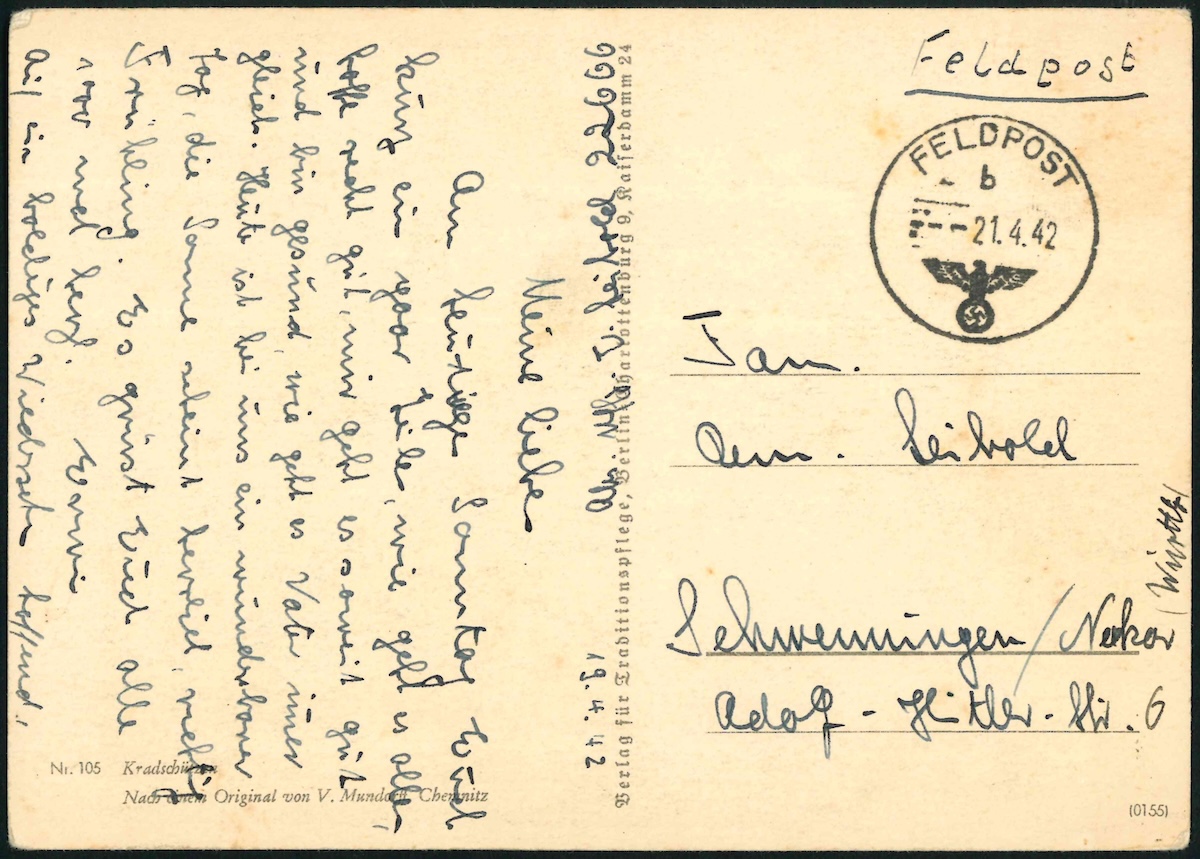 Feldpost
FELDPOST
b
21.4.42
Fam.
Seibold
Schwenningen/Neckar
(Württb)
Adolf-Hitler-Str. 6
22666
19.4.42
Meine Liebe
Am heutige Sonntag Euch
kurz ein paar Zeiler, wie geht es aller,
hoffe recht gut, mir geht es soweit gut
und bin gesund, wie geht es Vater imer
gleich. Heute ist bei uns ein wundrbarer
Tag, die Sonne scheint herrlich, rich
Frühling. Es grüsst Euch alle
herzl. Erwin
Auf ein baldiges Wiedrsehn hoffend,
Verlag für Traditionspflege, Berlin-Charlottenburg 9, Kaiserdamm 24
Nr. 105 Kradschützen
Nach einem Original von V. Mundorff, Chemnitz
(0155)